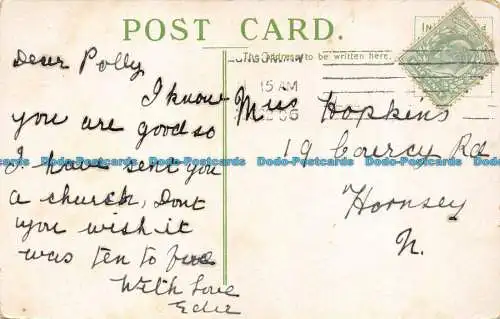 POST CARD.
The Address to be written here.
15 AM
06
Dear Polly
I know
you are good so
I have sent you
a church, Dont
you wish it
was ten to five
With Love
Edie
Miss Hopkins
19 Rd
Hornsey
N.
Dodo-Postcards Dodo-Postcards Dodo-Postcards Dodo-Postcards Dodo-Postcards